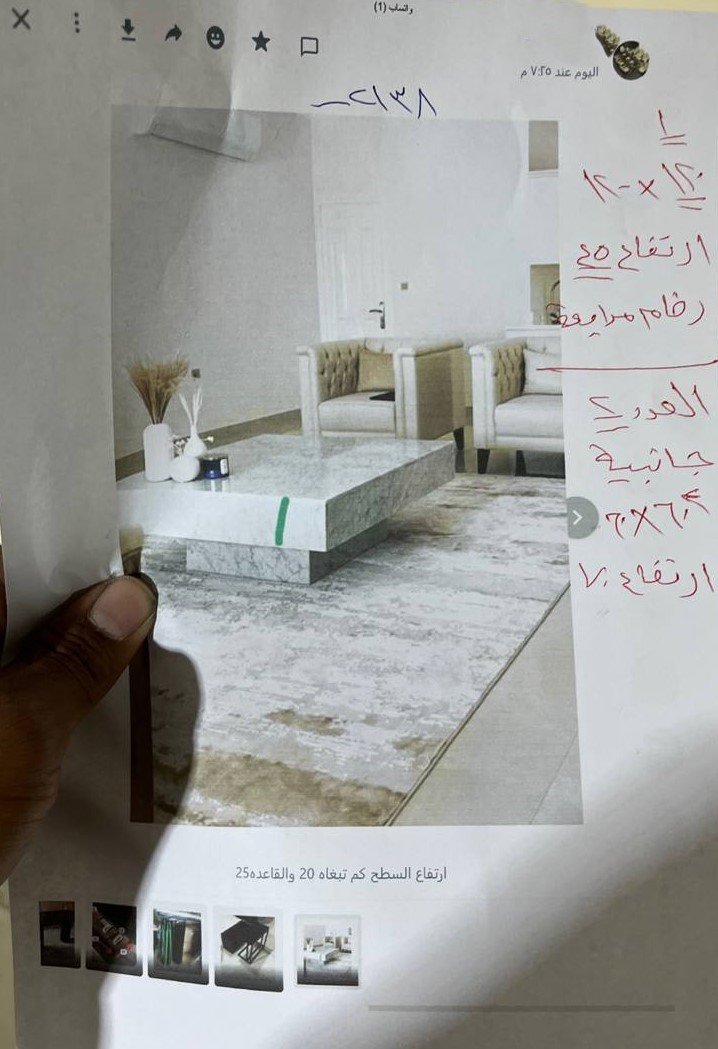 واتساب (1)
اليوم عند ٧:٢٥ م
٢١٣٨
١
١٢٠ × ١٢٠
ارتفاع ٤٥
رخام
العدد ٢
جانبية
٦٠×٦٠
ارتفاع ٧٠
ارتفاع السطح كم تبغاه 20 والقاعده25